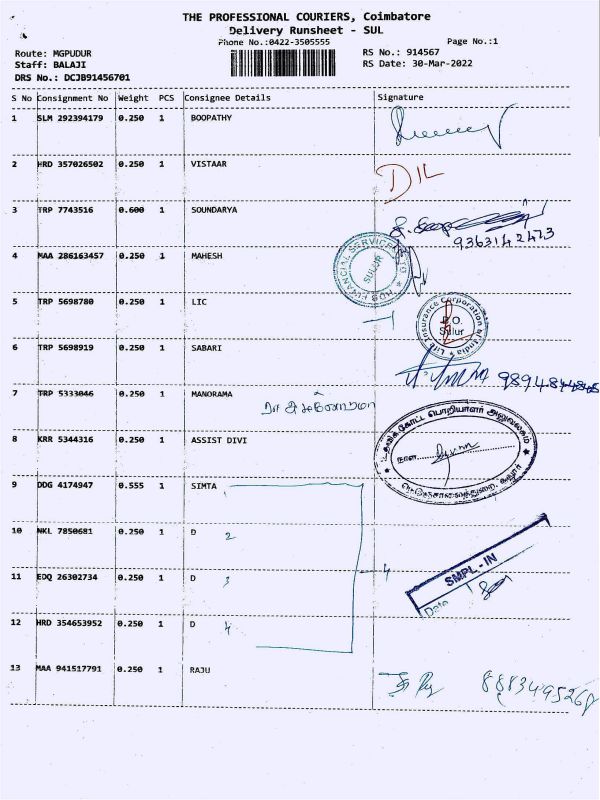 THE PROFESSIONAL COURIERS, Coimbatore
Delivery Runsheet - SUL
Phone No.:0422-3505555
Page No.:1
Route: MGPUDUR
RS No.: 914567
Staff: BALAJI
RS Date: 30-Mar-2022
DRS No.: DCJB91456701
S No Consignment No Weight PCS Consignee Details Signature
1 SLM 292394179 0.250 1 BOOPATHY
2 HRD 357026502 0.250 1 VISTAAR
3 TRP 7743516 0.600 1 SOUNDARYA
9363142473
4 MAA 286163457 0.250 1 MAHESH
HDB FINANCIAL SERVICES LTD
SULUR
5 TRP 5698780 0.250 1 LIC
Life Insurance Corporation of India
Sulur
6 TRP 5698919 0.250 1 SABARI
7 TRP 5333046 0.250 1 MANORAMA
8 KRR 5344316 0.250 1 ASSIST DIVI
உதவிக் கோட்ட பொறியாளர் அலுவலகம்
நாள்
நெடுஞ்சாலைத்துறை, சூலூர்
9 DDG 4174947 0.555 1 SIMTA
10 NKL 7850681 0.250 1 D 2
11 EDQ 26302734 0.250 1 D 3
4
SMPL - IN
Date
12 HRD 354653952 0.250 1 D 4
13 MAA 941517791 0.250 1 RAJU